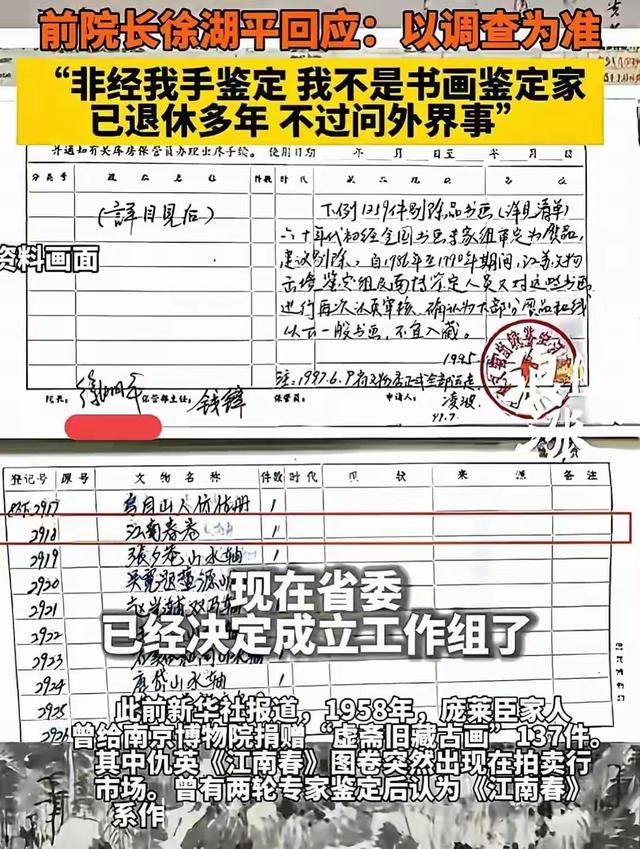 前院长徐湖平回应：以调查为准
“非经我手鉴定 我不是书画鉴定家
已退休多年 不过问外界事”
并通知有关库房保管员办理出库手续。使用日期 年 月 日至 年 月 日
分类号 件数 时代
(詳目見后)
下列1259件剔除品书画(详见清单)
六十年代初经全国书画专家组审定为废品，
建议剔除。自1986年至1990年期间，江苏文物
出境鉴定组及南博鉴定人员又对这些书画
进行再次认真审核，确认为大部分废品和线
以下一般书画，不宜入藏。
1995
资料画面
院长： 徐湖平 保管部主任： 钱锋 保管员： 申请人： 凌波
97.7.
登记号 原号 文物名称 件数 时代 现状 来源 备注
2917 1
2918 江南春卷 1
2919 張夕庵山水轴 1
2920 1
2921
2922
2923
2924 山水轴
2925
现在省委
已经决定成立工作组了
此前新华社报道，1958年，庞莱臣家人
曾给南京博物院捐赠“虚斋旧藏古画”137件。
其中仇英《江南春》图卷突然出现在拍卖行
市场。曾有两轮专家鉴定后认为《江南春》
系作